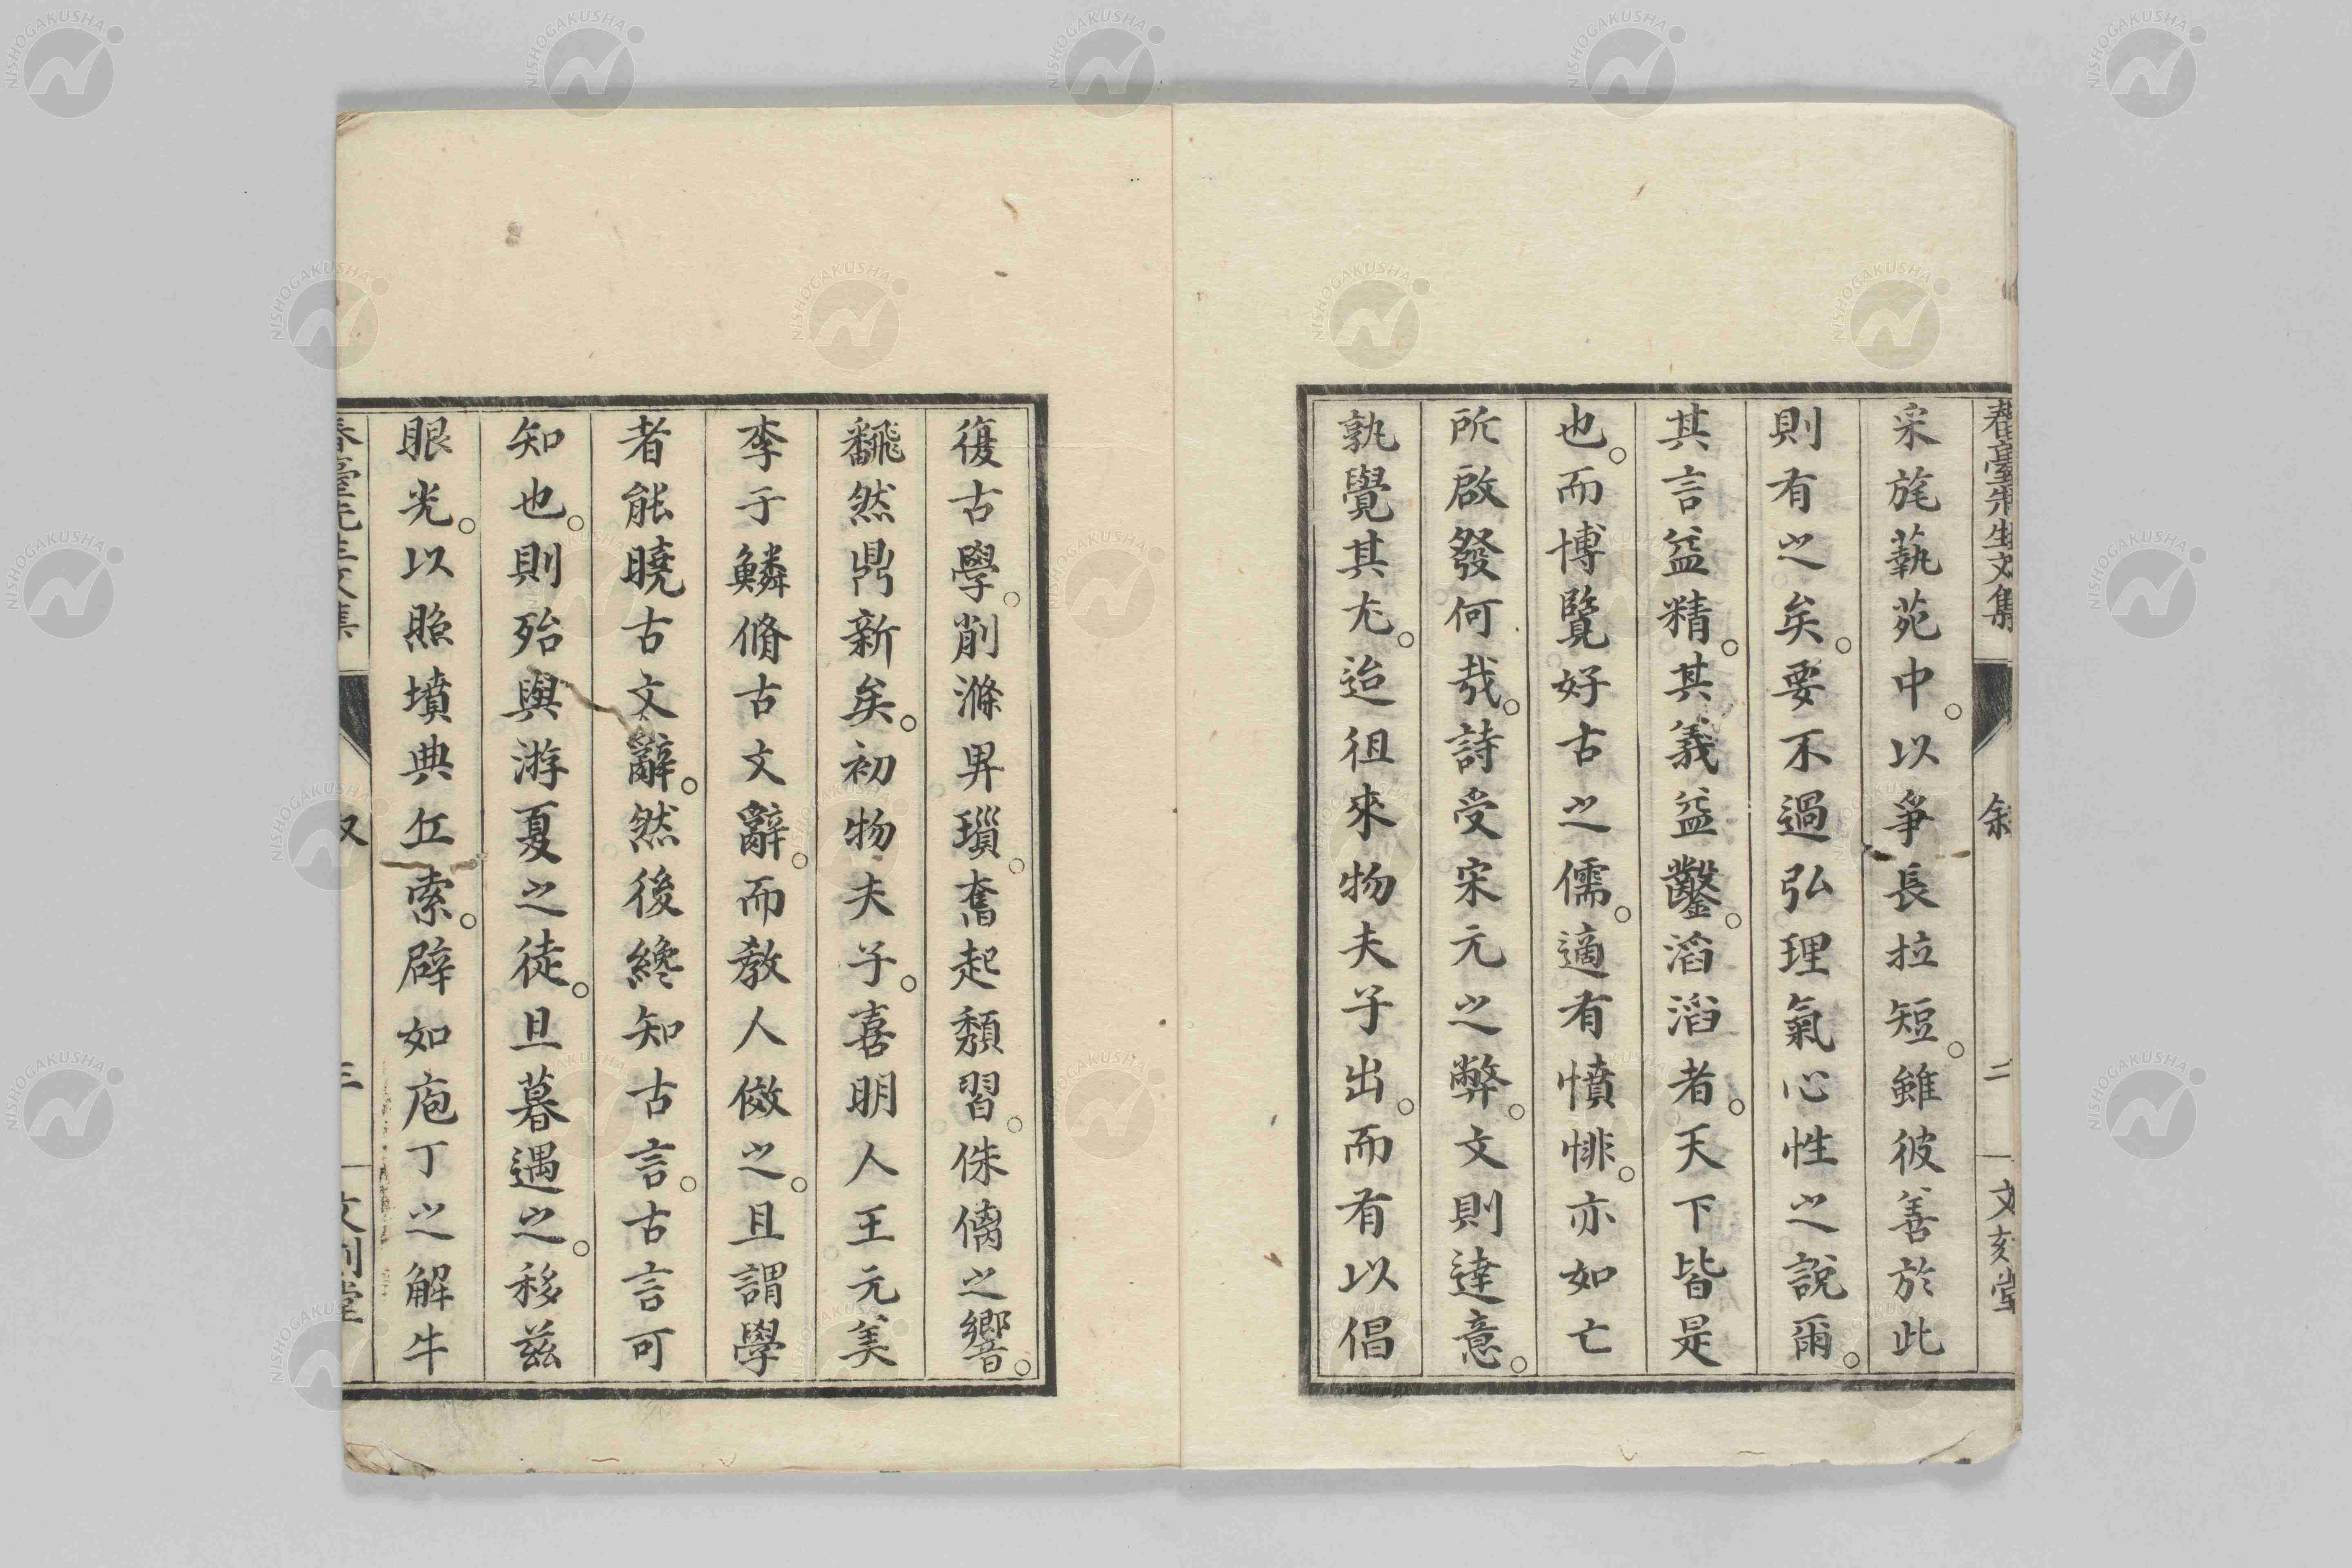 春臺先生文集 敘 二 文刻堂
采旄藝苑中。以爭長拉短。雖彼善於此
則有之矣。要不過弘理氣心性之說爾。
其言益精。其義益鑿。滔滔者。天下皆是
也。而博覽好古之儒。適有憤悱。亦如亡
所啟發何哉。詩受宋元之弊。文則達意。
孰覺其尤。迨徂來物夫子出。而有以倡
復古學。削滌畀瑣。奮起頹習。侏僪之響。
飜然鼎新矣。初物夫子。喜明人王元美
李于鱗脩古文辭。而教人傚之。且謂學
者能曉古文辭。然後纔知古言。古言可
知也。則殆與游夏之徒。旦暮遇之。移茲
眼光。以照墳典丘索。辟如庖丁之解牛
春臺先生文集 三 文刻堂
NISHOGAKUSHA